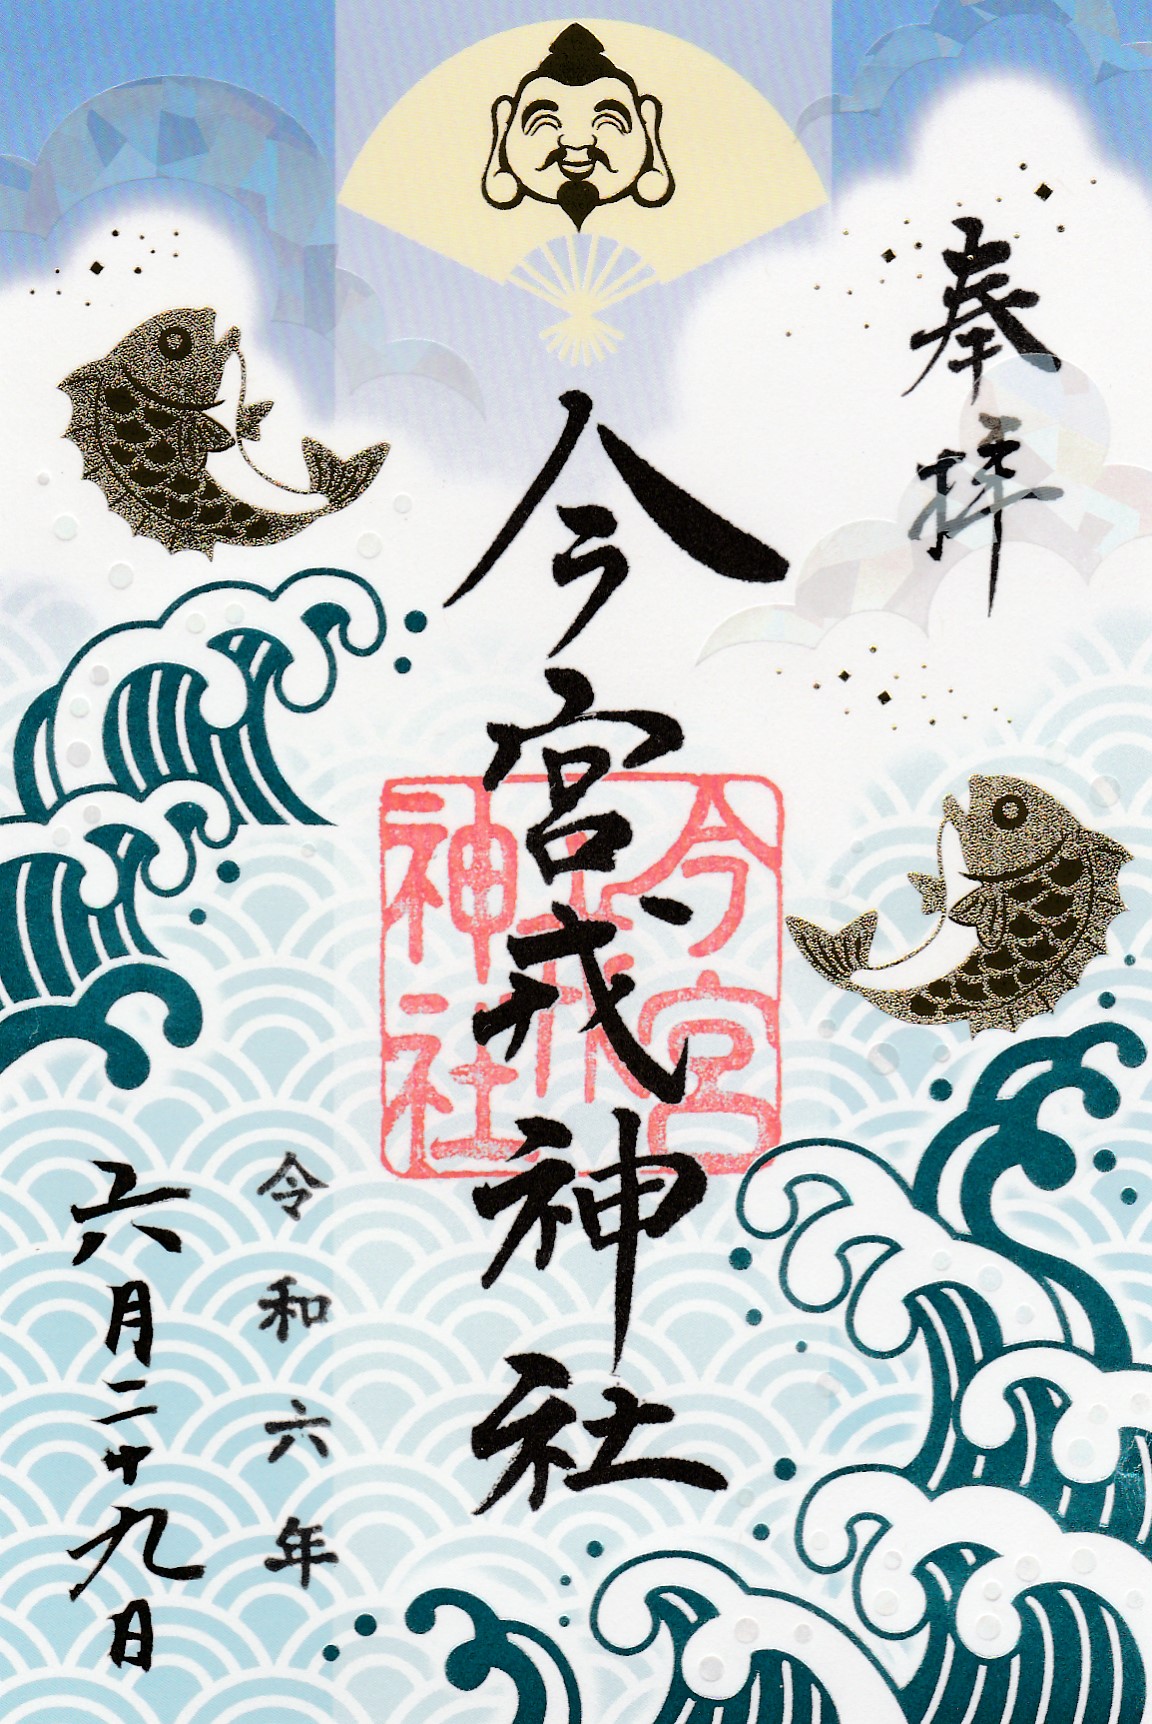 奉拝
今宮戎神社
今宮
戎
神社
令和六年
六月二十九日